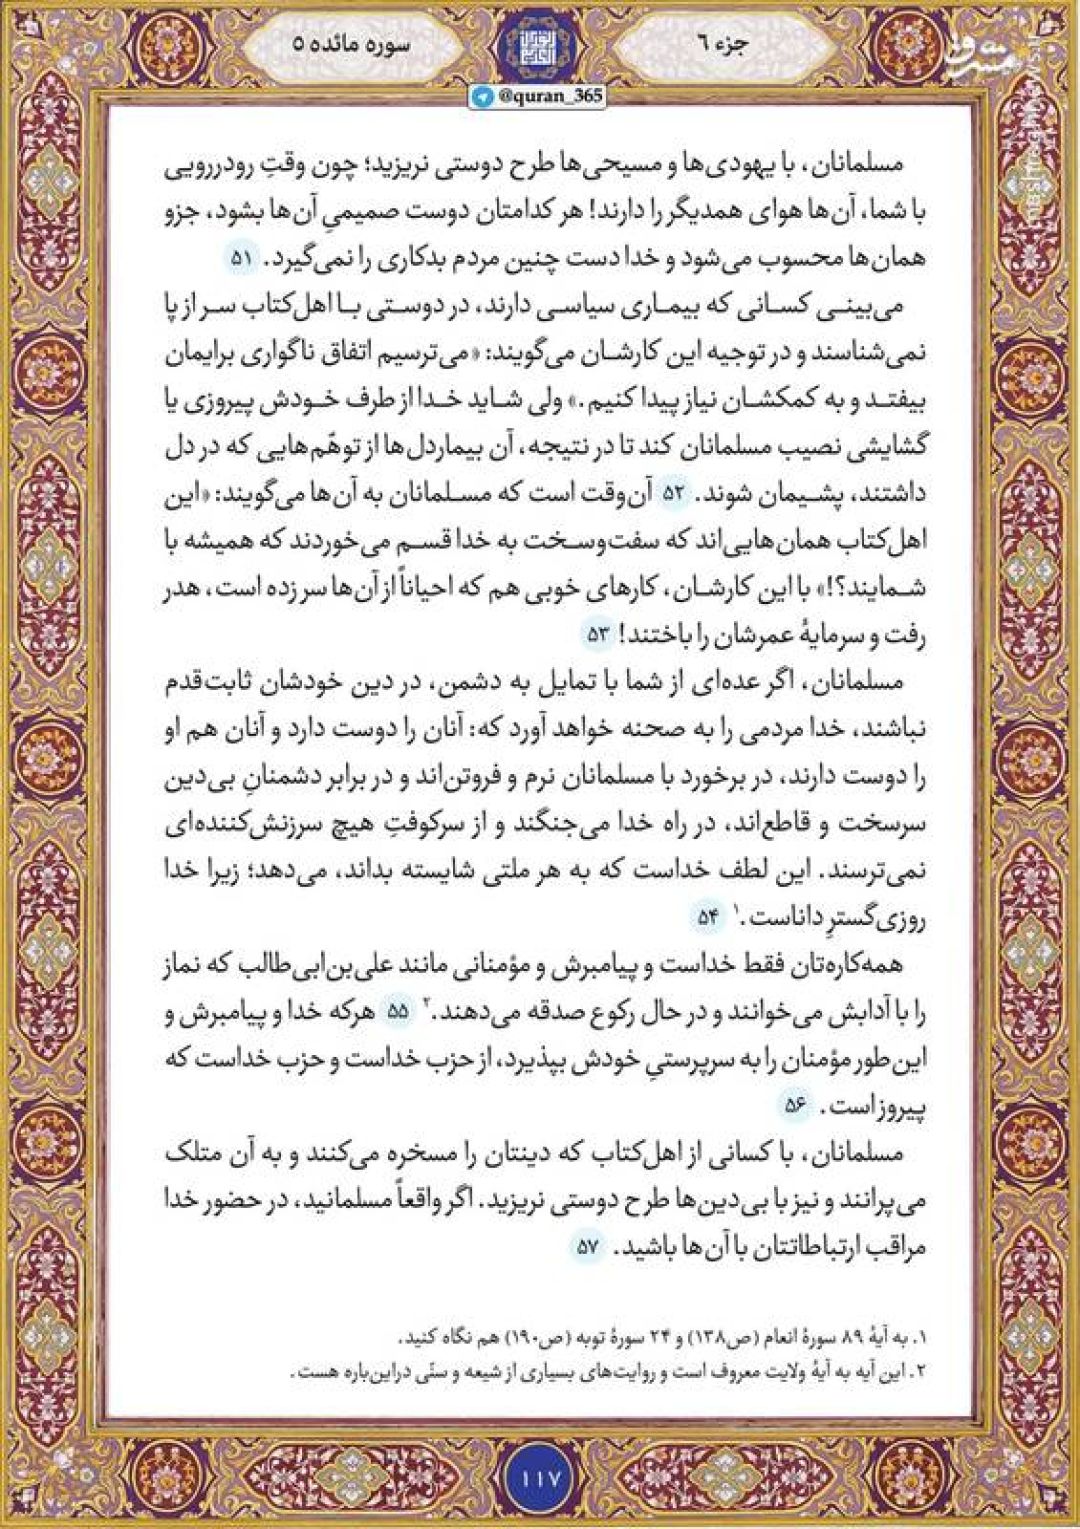 جزء ۶
سوره مائده ۵
مشرق
mashreghnews.ir
@quran_365
مسلمانان، با یهودی‌ها و مسیحی‌ها طرح دوستی نریزید؛ چون وقتِ رودررویی
با شما، آن‌ها هوای همدیگر را دارند! هر کدامتان دوست صمیمیِ آن‌ها بشود، جزو
همان‌ها محسوب می‌شود و خدا دست چنین مردم بدکاری را نمی‌گیرد. ۵۱
می‌بینی کسانی که بیماری سیاسی دارند، در دوستی با اهل‌کتاب سر از پا
نمی‌شناسند و در توجیه این کارشان می‌گویند: «می‌ترسیم اتفاق ناگواری برایمان
بیفتد و به کمکشان نیاز پیدا کنیم.» ولی شاید خدا از طرف خودش پیروزی یا
گشایشی نصیب مسلمانان کند تا در نتیجه، آن بیماردل‌ها از توهّم‌هایی که در دل
داشتند، پشیمان شوند. ۵۲ آن‌وقت است که مسلمانان به آن‌ها می‌گویند: «این
اهل‌کتاب همان‌هایی‌اند که سفت‌وسخت به خدا قسم می‌خوردند که همیشه با
شمایند؟!» با این کارشان، کارهای خوبی هم که احیاناً از آن‌ها سر زده است، هدر
رفت و سرمایهٔ عمرشان را باختند! ۵۳
مسلمانان، اگر عده‌ای از شما با تمایل به دشمن، در دین خودشان ثابت‌قدم
نباشند، خدا مردمی را به صحنه خواهد آورد که: آنان را دوست دارد و آنان هم او
را دوست دارند، در برخورد با مسلمانان نرم و فروتن‌اند و در برابر دشمنانِ بی‌دین
سرسخت و قاطع‌اند، در راه خدا می‌جنگند و از سرکوفتِ هیچ سرزنش‌کننده‌ای
نمی‌ترسند. این لطف خداست که به هر ملتی شایسته بداند، می‌دهد؛ زیرا خدا
روزی‌گسترِ داناست.۱ ۵۴
همه‌کاره‌تان فقط خداست و پیامبرش و مؤمنانی مانند علی‌بن‌ابی‌طالب که نماز
را با آدابش می‌خوانند و در حال رکوع صدقه می‌دهند.۲ ۵۵ هرکه خدا و پیامبرش و
این‌طور مؤمنان را به سرپرستیِ خودش بپذیرد، از حزب خداست و حزب خداست که
پیروز است. ۵۶
مسلمانان، با کسانی از اهل‌کتاب که دینتان را مسخره می‌کنند و به آن متلک
می‌پرانند و نیز با بی‌دین‌ها طرح دوستی نریزید. اگر واقعاً مسلمانید، در حضور خدا
مراقب ارتباطاتتان با آن‌ها باشید. ۵۷
۱. به آیهٔ ۸۹ سورهٔ انعام (ص۱۳۸) و ۲۴ سورهٔ توبه (ص۱۹۰) هم نگاه کنید.
۲. این آیه به آیهٔ ولایت معروف است و روایت‌های بسیاری از شیعه و سنّی دراین‌باره هست.
۱۱۷